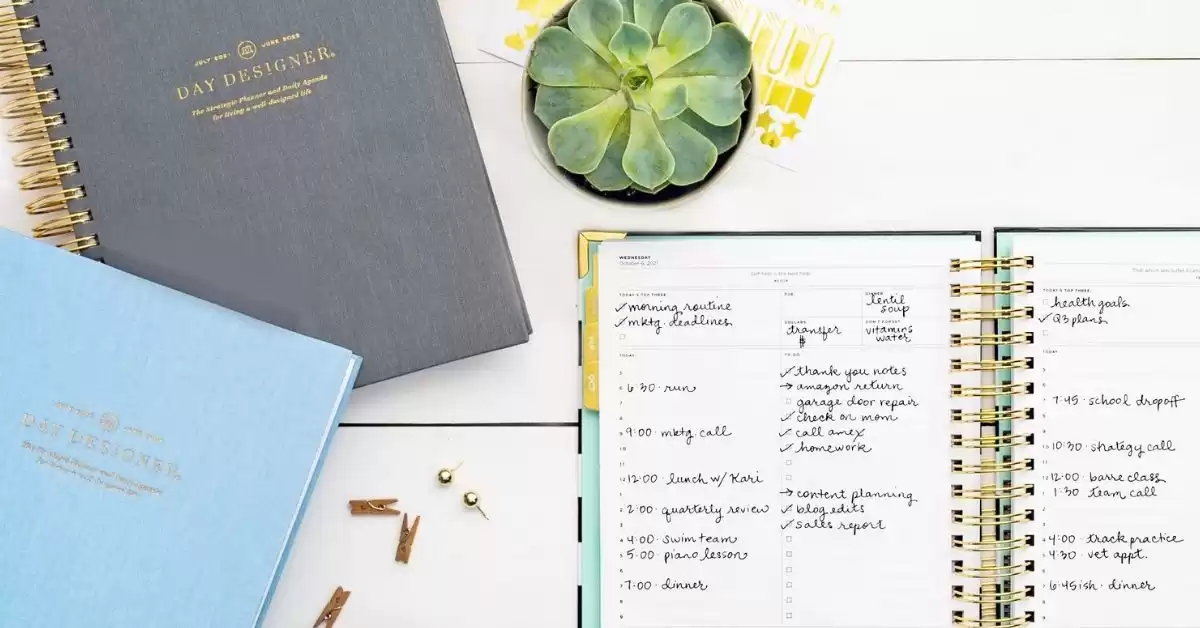 JULY 2021
JUNE 2022
DAY DESIGNER
The Strategic Planner and Daily Agenda
for living a well-designed life
DAY DESIGNER
WEDNESDAY
October 6, 2021
TODAY'S TOP THREE
DUE
DINNER
morning routine
lentil
mktg. deadlines
soup
DOLLARS
DON'T FORGET
transfer
vitamins
$
water
TODAY
TO DO
6:30 · run
9:00 · mktg. call
12:00 · lunch w/ Kari
2:00 · quarterly review
4:00 · swim team
5:00 · piano lesson
7:00 · dinner
thank you notes
→ amazon return
garage door repair
check on mom
call amex
homework
→ content planning
blog edits
sales report
TODAY'S TOP THREE
health goals
Q3 plans
TODAY
7:45 · school dropoff
10:30 · strategy call
12:00 · barre class
1:30 team call
4:00 · track practice
4:30 · vet appt.
6:45ish · dinner